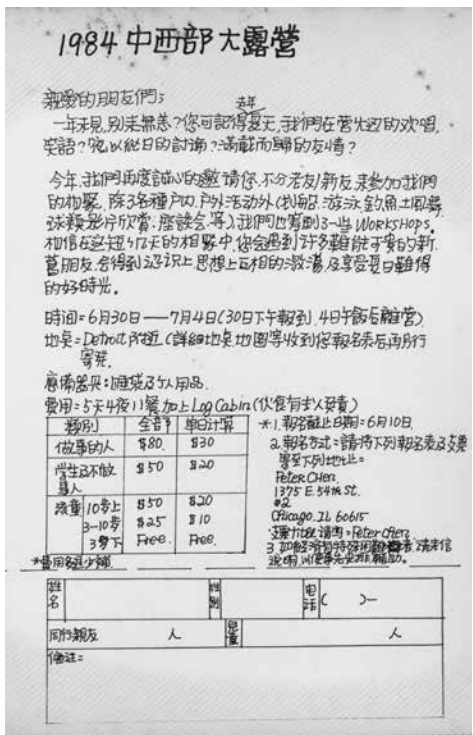 1984 中西部大露營
親愛的朋友們:
一年未見,别来無恙?您可記得去年夏天,我們在營火边的欢唱,
笑語?夜以継日的討論?滿載而歸的友情?
今年,我們再度誠心的邀請您,不分老友/新友,来參加我們
的相聚,除了各種户内,户外活动外(划船、游泳、釣魚、土風舞
球類、影片欣賞、座談会、等),我們也籌劃了一些WORKSHOPS。
相信在这短々几天的相聚中,您会遇到许多難能可貴的新
舊朋友,会得到认识上、思想上互相的激湯,及享受夏日難得
的好時光。
時间=6月30日——7月4日(30日下午報到,4日午飯后離营)
地奌=Detroit 附近(詳細地奌地图等收到您報名表后再另行
寄発。
應備器具:睡袋及个人用品。
費用=5天4夜11餐加上Log Cabin(伙食有专人负責)
類别 全部 单日計算
做事的人 $80. $30
学生及不做事人 $50 $20
孩童 10岁上 $50 $20
3-10岁 $25 $10
3岁下 Free. Free.
*費用多退少補
*1.報名截止日期=6月10日.
2.報名方式=請将下列報名表及支票
寄至下列地址=
Peter CHen.
1375 E. 54th St.
#2
Chicago. IL 60615
支票抬头请写=Peter Chen
3.如經济有特殊困難者,請来信
説明,以便事先安排輔助。
姓名 性别 电话( )-
同行親友 人 兒童 人
備註=